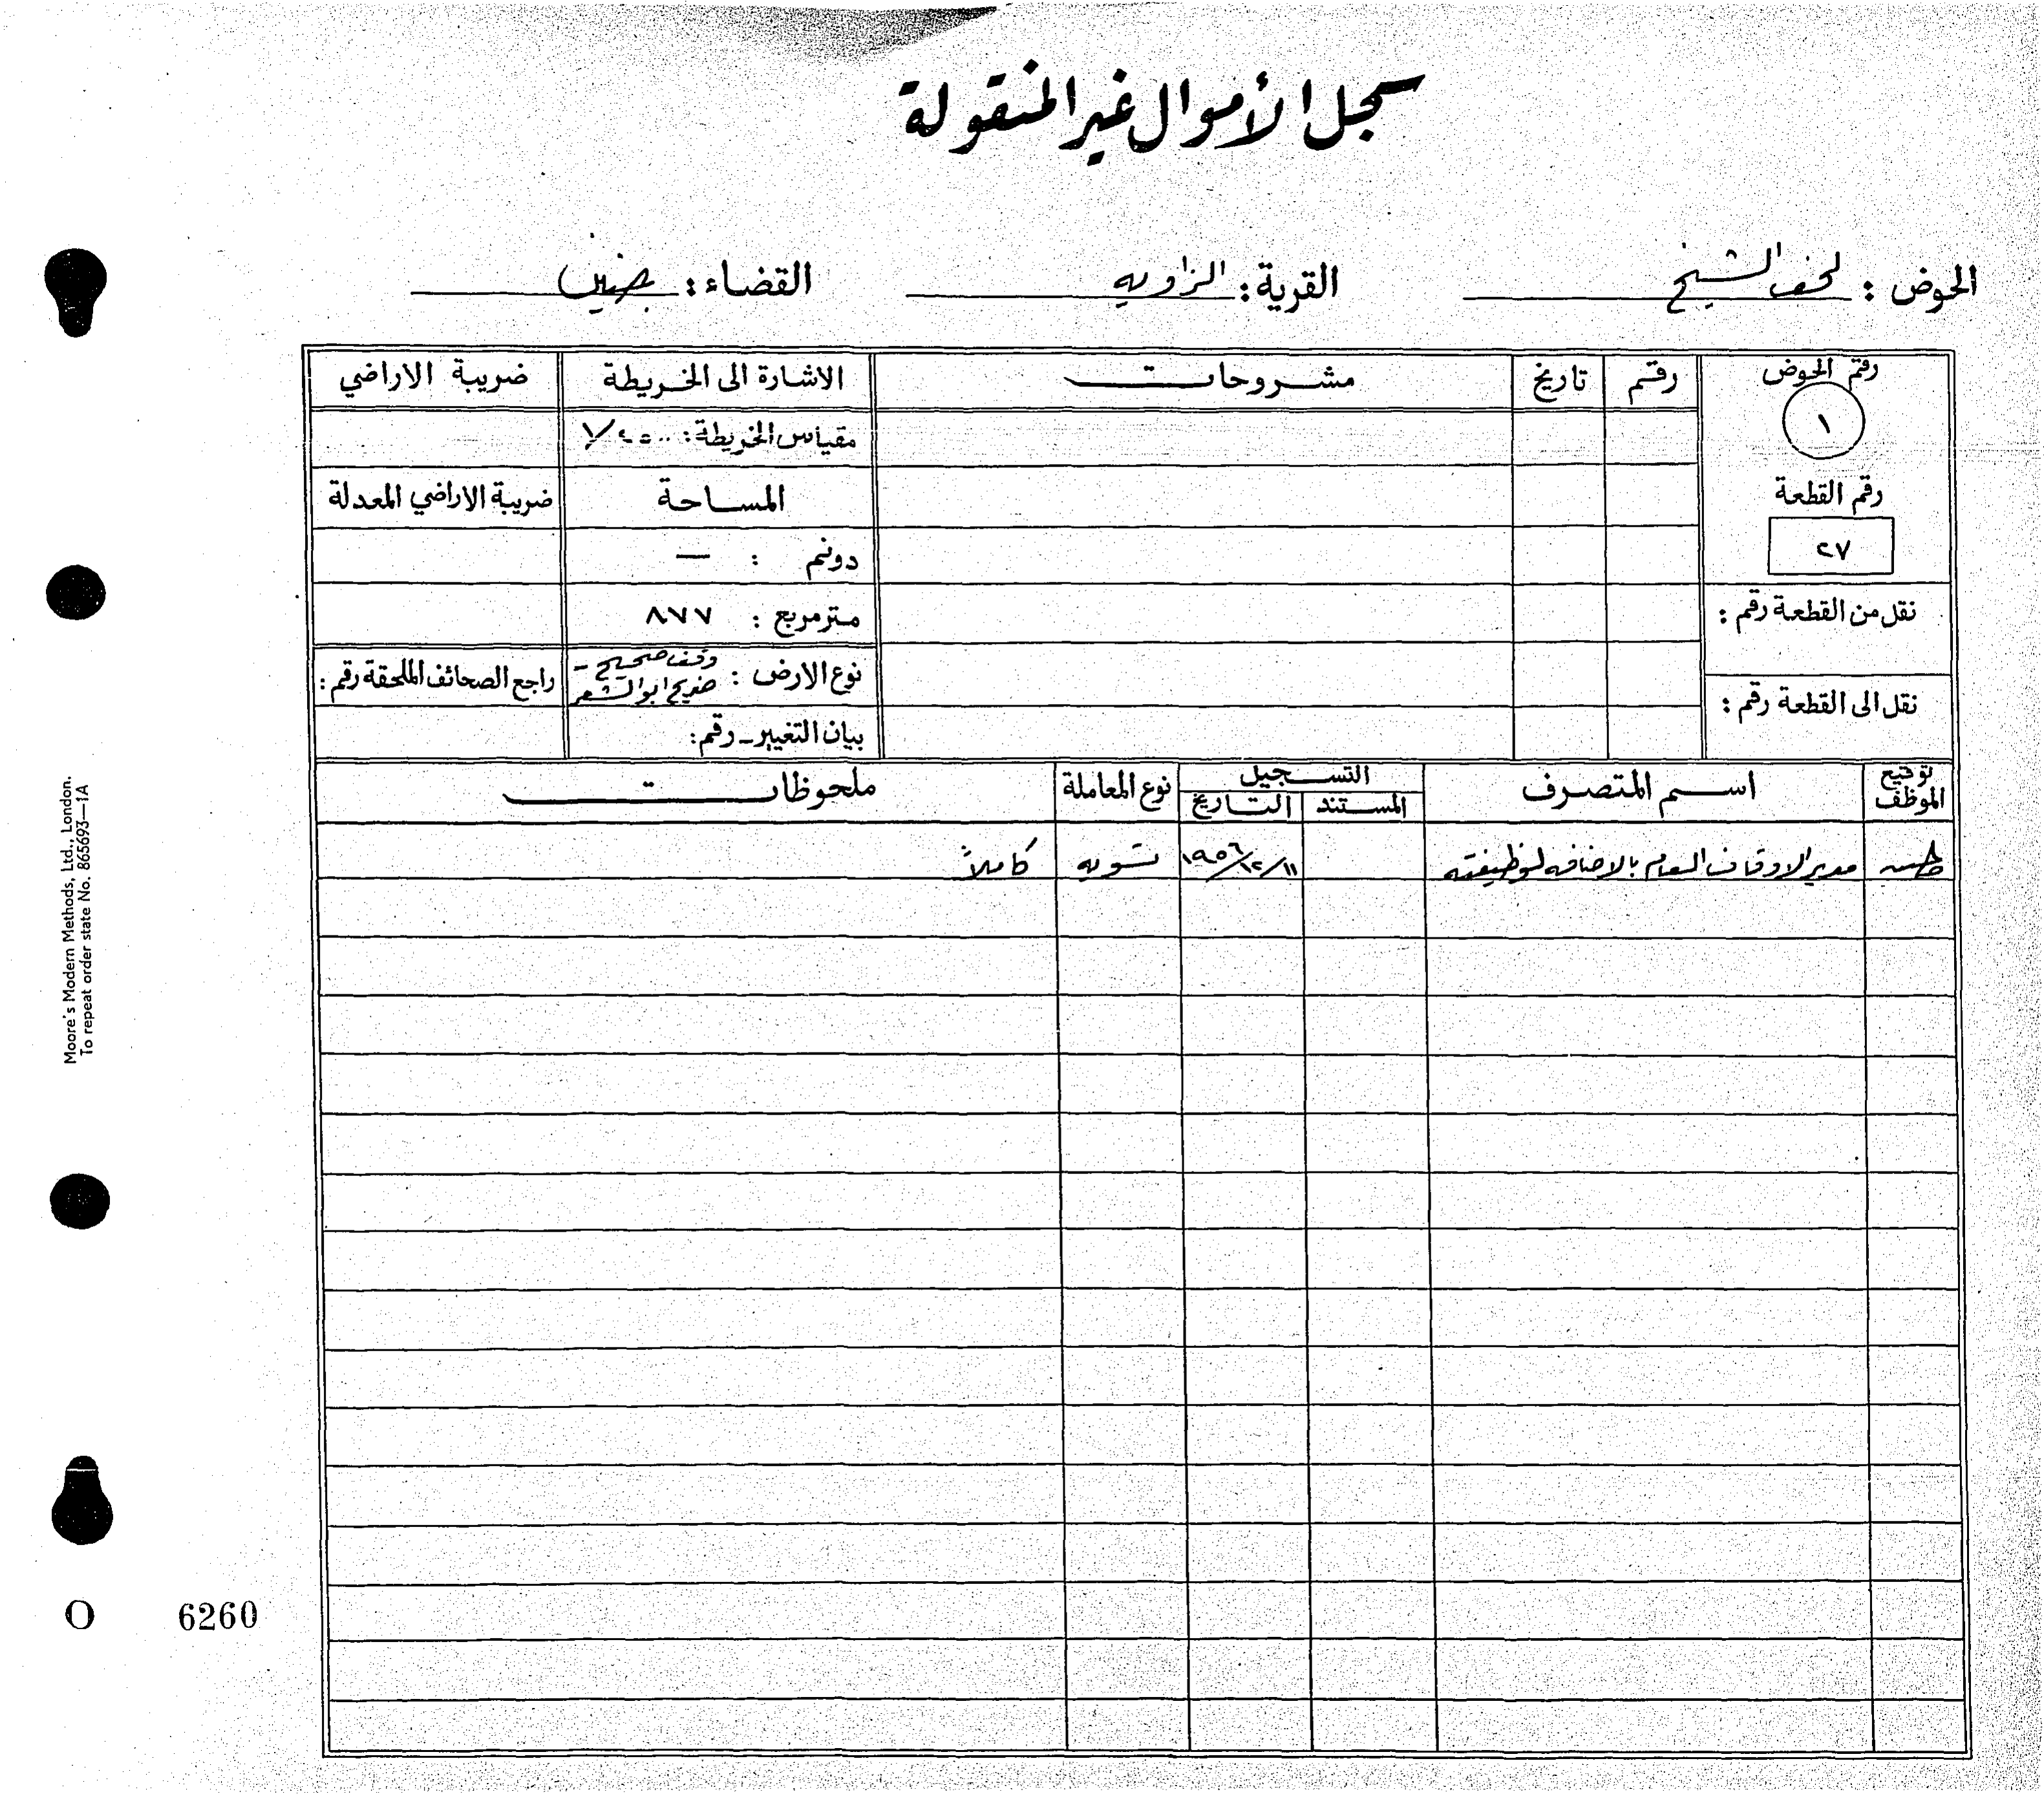 سجل الأموال غير المنقولة
الحوض : لحف الشيخ القرية : الزاويه القضاء : جنين
رقم الحوض رقم تاريخ مشروحات الاشارة الى الخريطة ضريبة الاراضي
١
مقياس الخريطة : ١/٢٥٠٠
رقم القطعة
المساحة ضريبة الاراضي المعدلة
٢٧
دونم : —
نقل من القطعة رقم :
متر مربع : ٨٧٧
نوع الارض : وقف صحيح -
ضريح ابو الشعر
راجع الصحائف الملحقة رقم :
نقل الى القطعة رقم :
بيان التغيير - رقم :
توقيع الموظف اسم المتصرف التسجيل نوع المعاملة ملحوظات
المستند التاريخ
مدير الاوقاف العام بالاضافه لوظيفته ١١/١٢/١٩٥٦ تسويه كاملاً
Moore's Modern Methods, Ltd., London.
To repeat order state No. 865693—1A
O 6260